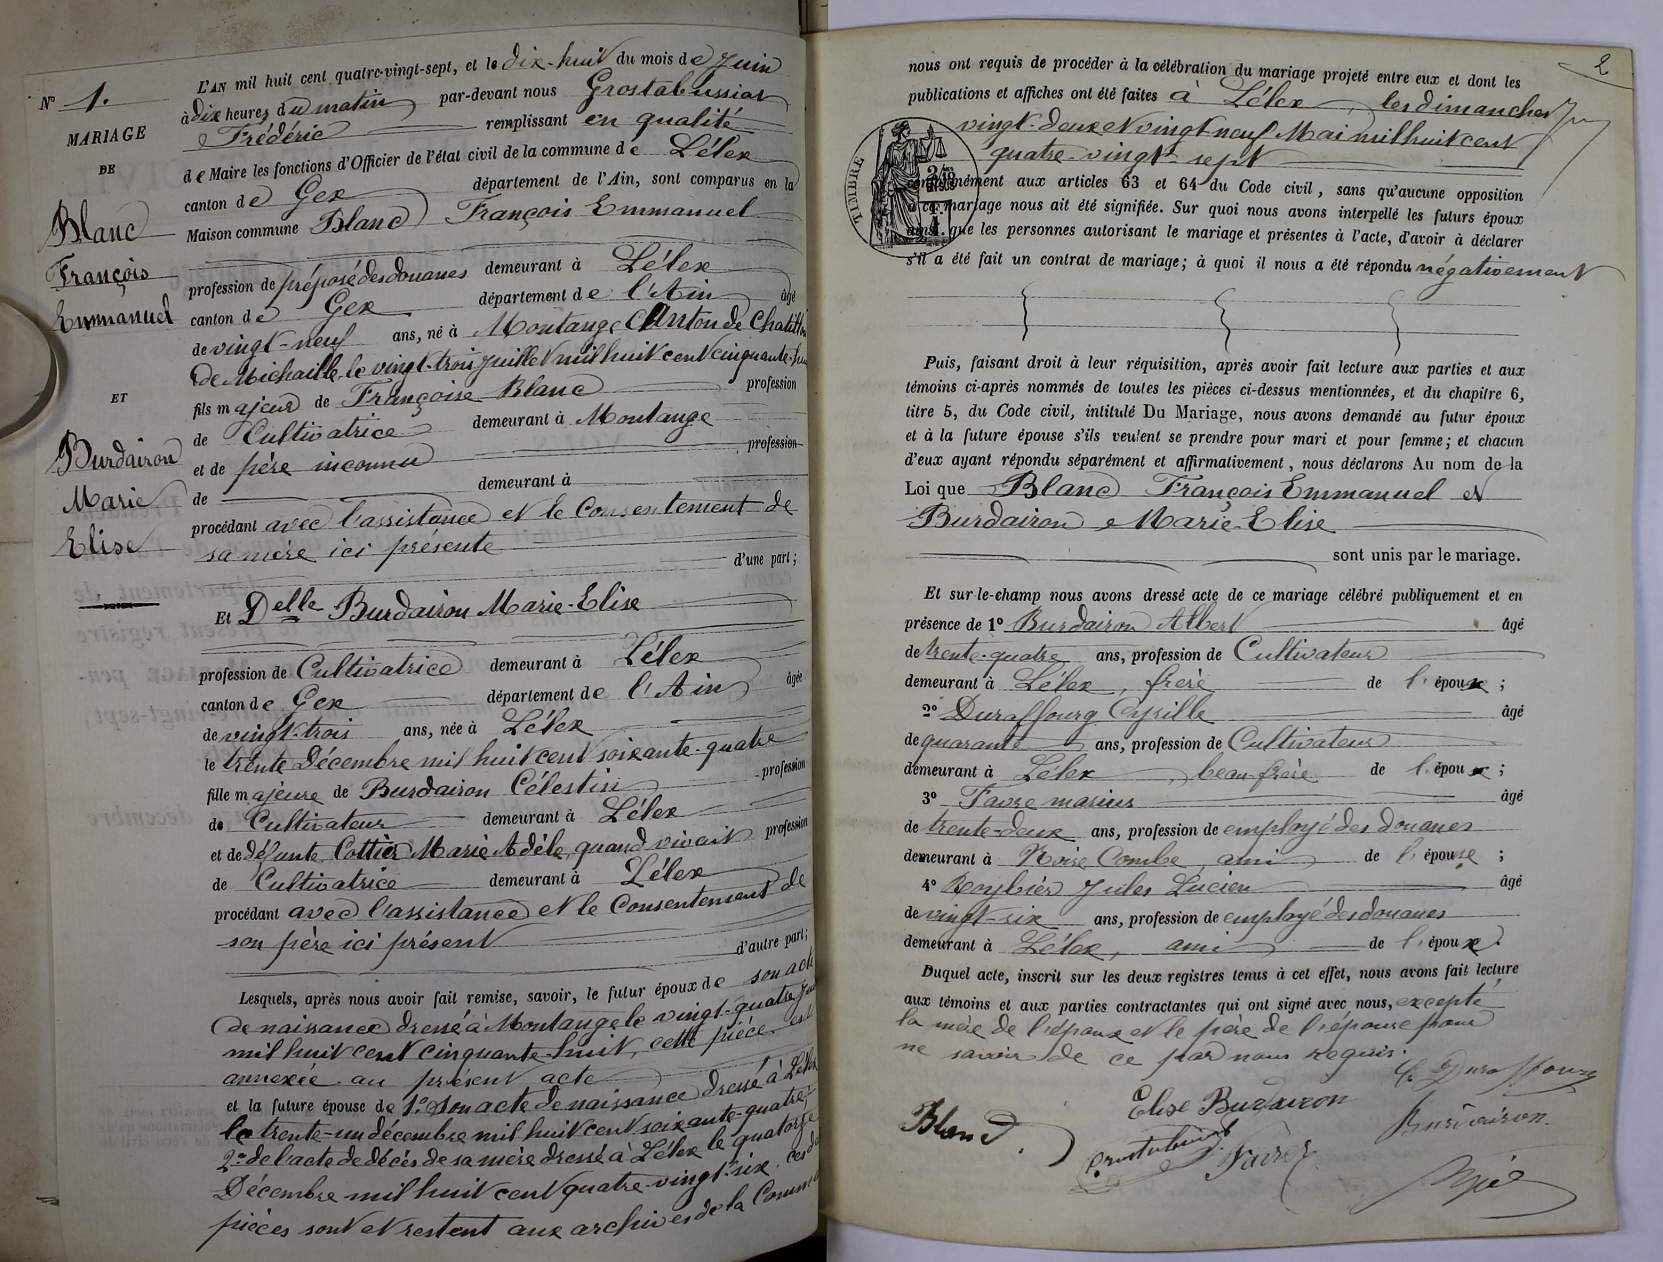 N° 1.
MARIAGE
DE
Blanc
François
Emmanuel
ET
Burdairon
Marie
Elise
L'AN mil huit cent quatre-vingt-sept, et le dix-huit du mois de Juin
à dix heures du matin par-devant nous Grostabussiat
Frédéric remplissant en qualité
de Maire les fonctions d'Officier de l'état civil de la commune de Lélex
canton de Gex département de l'Ain, sont comparus en la
Maison commune Blanc François Emmanuel
profession de préposé des douanes demeurant à Lélex
canton de Gex département de l'Ain âgé
de vingt-neuf ans, né à Montange Canton de Chatillon
de Michaille, le vingt-trois Juillet mil huit cent cinquante-huit
fils majeur de Françoise Blanc profession
de Cultivatrice demeurant à Montange
et de père inconnu profession
de demeurant à
procédant avec l'assistance et le Consentement de
sa mère ici présente
d'une part;
Et Delle Burdairon Marie-Elise
profession de Cultivatrice demeurant à Lélex
canton de Gex département de l'Ain âgée
de vingt-trois ans, née à Lélex
le trente Décembre mil huit cent soixante-quatre
fille majeure de Burdairon Célestin profession
de Cultivateur demeurant à Lélex
et de défunte Cottier Marie Adèle, quand vivait profession
de Cultivatrice demeurant à Lélex
procédant avec l'assistance et le Consentement de
son père ici présent
d'autre part;
Lesquels, après nous avoir fait remise, savoir, le futur époux de son acte
de naissance dressé à Montange le vingt-quatre
mil huit cent cinquante-huit, cette pièce est
annexée au présent acte
et la future épouse de 1° Son acte de naissance dressé à Lélex
le trente-un décembre mil huit cent soixante-quatre
2° de l'acte de décès de sa mère dressé à Lélex le quatorze
Décembre mil huit cent quatre-vingt-six. Ces
pièces sont et restent aux archives de la Commune
2
nous ont requis de procéder à la célébration du mariage projeté entre eux et dont les
publications et affiches ont été faites à Lélex, les dimanches
vingt-deux et vingt neuf Mai mil huit cent
quatre-vingt-sept
TIMBRE
conformément aux articles 63 et 64 du Code civil, sans qu'aucune opposition
à ce mariage nous ait été signifiée. Sur quoi nous avons interpellé les futurs époux
ainsi que les personnes autorisant le mariage et présentes à l'acte, d'avoir à déclarer
s'il a été fait un contrat de mariage; à quoi il nous a été répondu négativement
Puis, faisant droit à leur réquisition, après avoir fait lecture aux parties et aux
témoins ci-après nommés de toutes les pièces ci-dessus mentionnées, et du chapitre 6,
titre 5, du Code civil, intitulé Du Mariage, nous avons demandé au futur époux
et à la future épouse s'ils veulent se prendre pour mari et pour femme; et chacun
d'eux ayant répondu séparément et affirmativement, nous déclarons Au nom de la
Loi que Blanc François Emmanuel et
Burdairon Marie-Elise
sont unis par le mariage.
Et sur-le-champ nous avons dressé acte de ce mariage célébré publiquement et en
présence de 1° Burdairon Albert âgé
de trente-quatre ans, profession de Cultivateur
demeurant à Lélex, frère de l'épouse;
2° Duraffourg Cyrille âgé
de quarante ans, profession de Cultivateur
demeurant à Lélex, beau-frère de l'épouse;
3° Favre marius âgé
de trente-deux ans, profession de employé des douanes
demeurant à Noire Combe, ami de l'épouse;
4° Jules Lucien âgé
de vingt-six ans, profession de employé des douanes
demeurant à Lélex, ami de l'époux.
Duquel acte, inscrit sur les deux registres tenus à cet effet, nous avons fait lecture
aux témoins et aux parties contractantes qui ont signé avec nous, excepté
la mère de l'époux et le père de l'épouse pour
ne savoir de ce par nous requis.
C. Duraffourg
Elise Burdairon
Blanc
Burdairon.
Favre